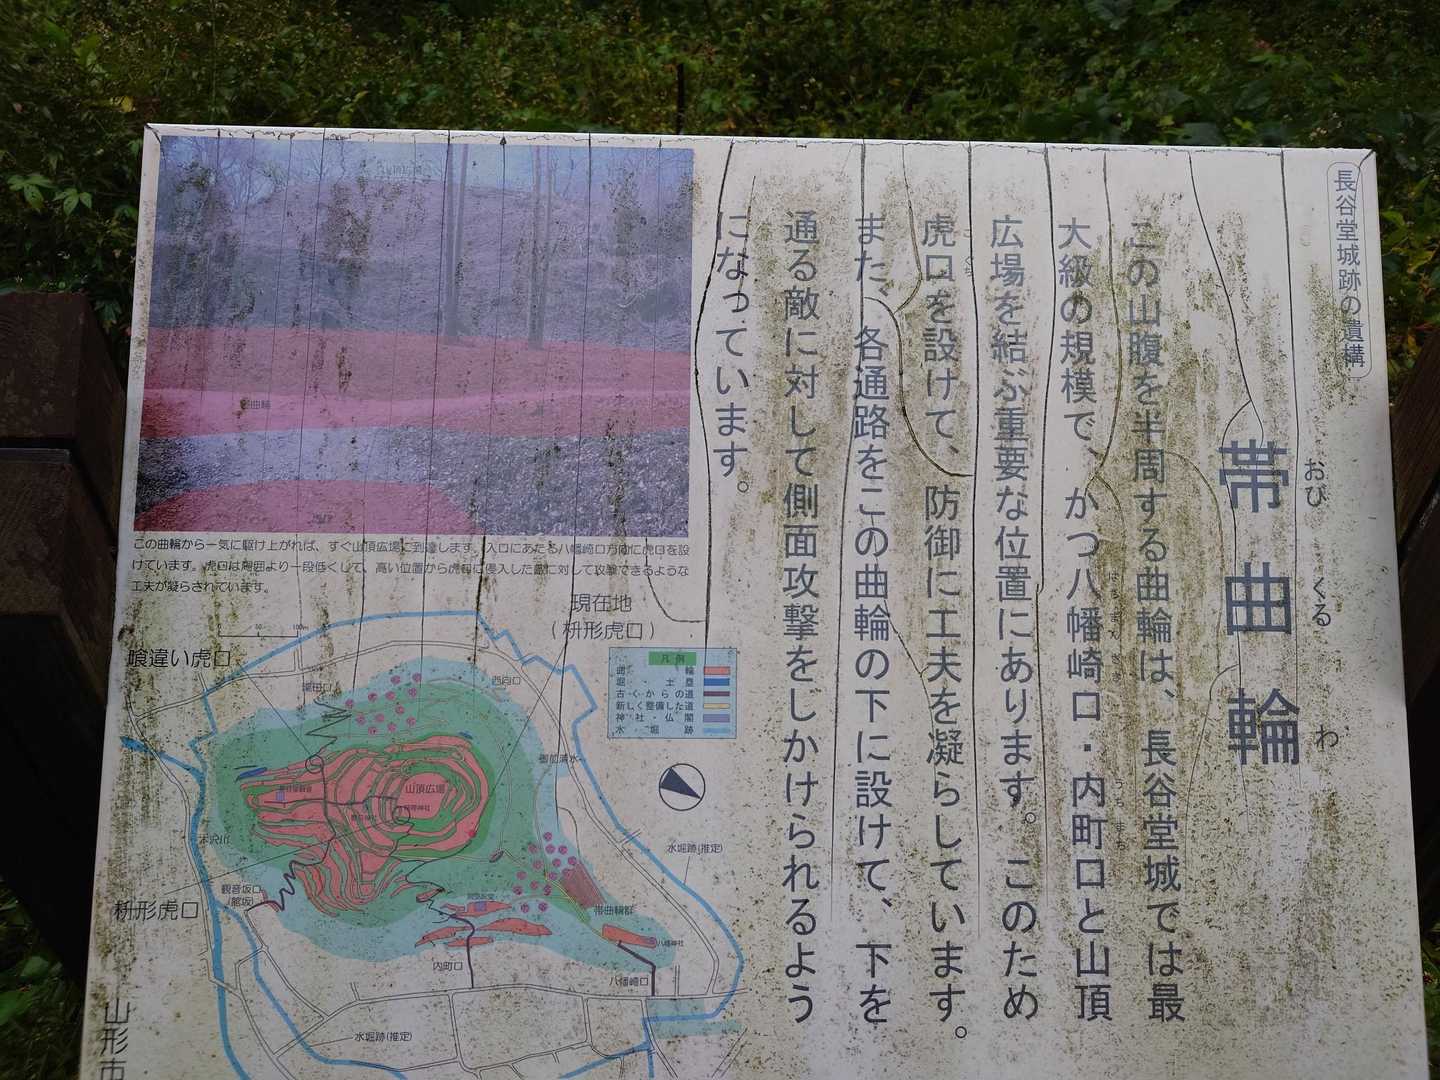 長谷堂城跡の遺構
おび くる わ
帯曲輪
この山腹を半周する曲輪は、長谷堂城では最
大級の規模で、かつ八幡崎口・内町口と山頂
広場を結ぶ重要な位置にあります。このため
虎口を設けて、防御に工夫を凝らしています。
また、各通路をこの曲輪の下に設けて、下を
通る敵に対して側面攻撃をしかけられるよう
になっています。
帯曲輪
この曲輪から一気に駆け上がれば、すぐ山頂広場に到達します。入口にあたる八幡崎口方向に虎口を設
けています。虎口は周囲より一段低くして、高い位置から虎口に侵入した敵に対して攻撃できるような
工夫が凝らされています。
現在地
(枡形虎口)
50 100m
喰違い虎口
凡例
曲輪
堀・土塁
古くからの道
新しく整備した道
神社・仏閣
水堀跡
西向口
御前清水
山頂広場
本沢川
水堀跡(推定)
観音坂口
枡形虎口
帯曲輪群
八幡神社
内町口
八幡崎口
水堀跡(推定)
山形市